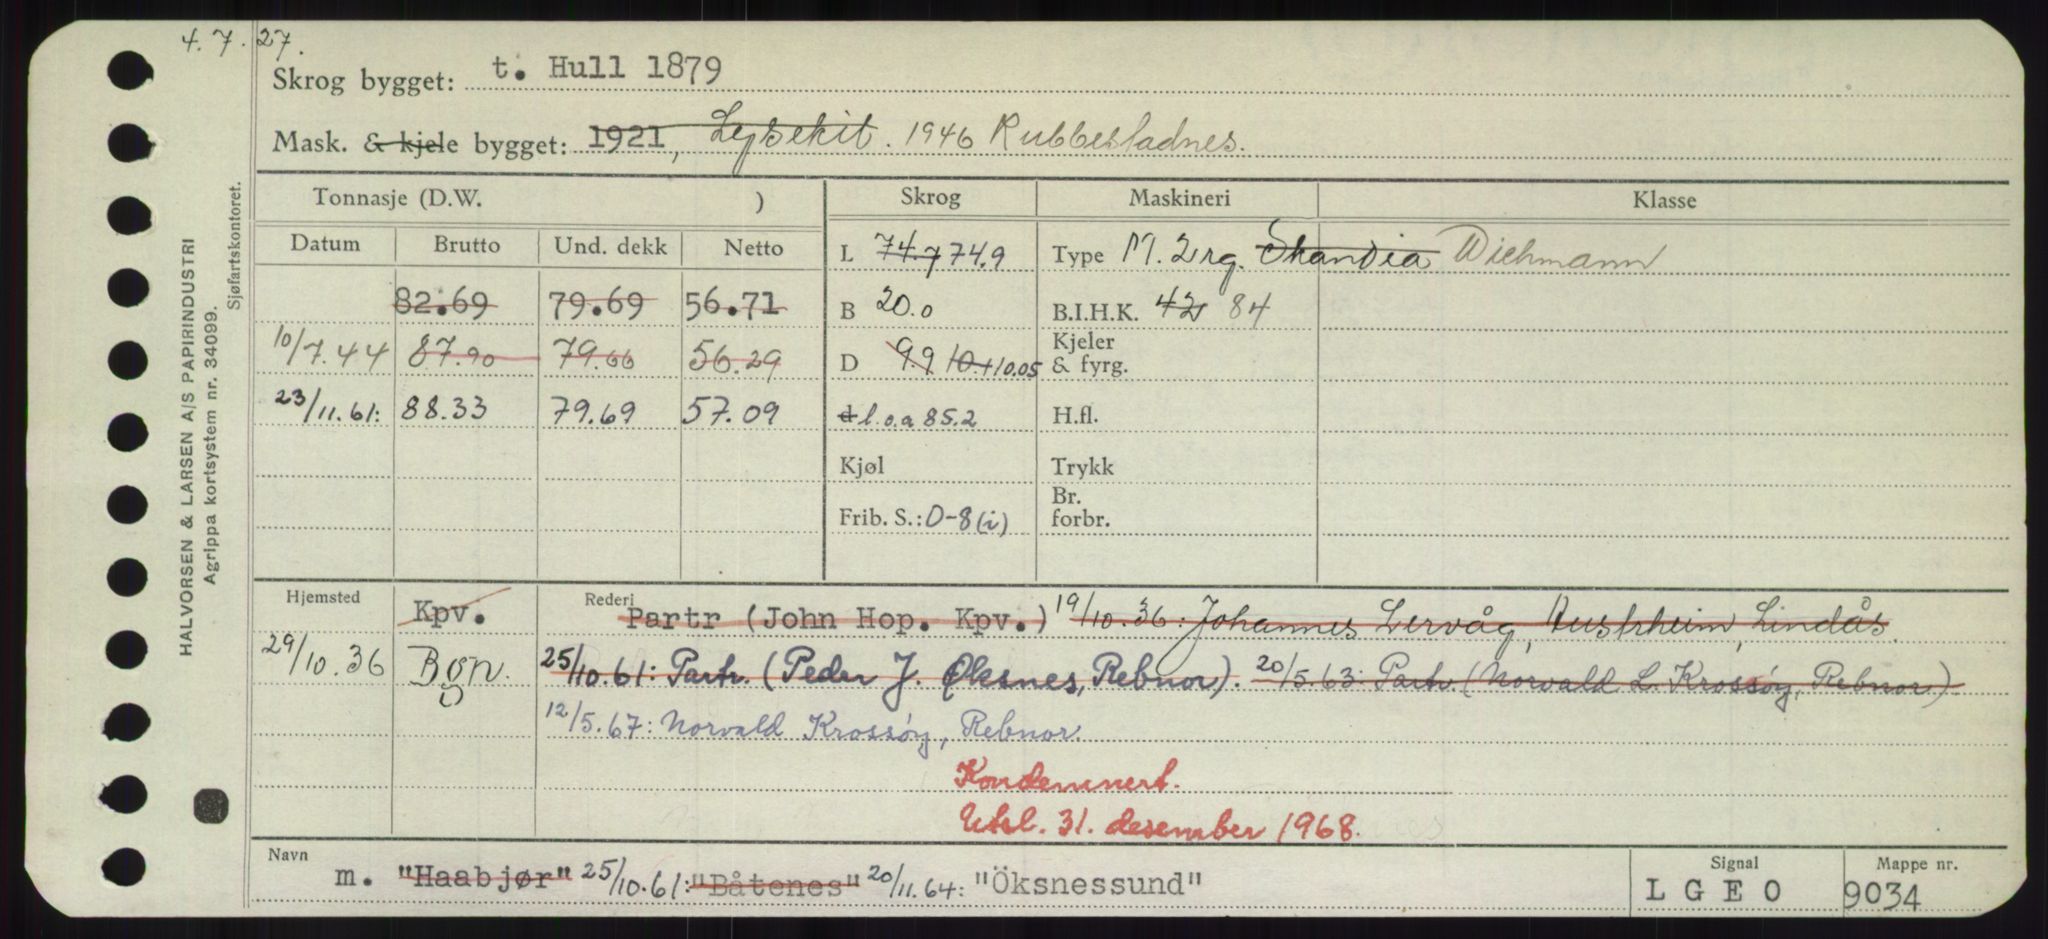 4.7.27.
Skrog bygget: t. Hull 1879
Mask. & kjele bygget: 1921, Lysekil. 1946 Rubbestadnes.
Tonnasje (D.W. ) Skrog Maskineri Klasse
Datum Brutto Und. dekk Netto L 74.7 74.9 Type M. 2 rg. Skandia Wichmann
82.69 79.69 56.71 B 20.0 B.I.H.K. 42 84
10/7.44 87.90 79.66 56.29 D 9.9 10.1 10.05 Kjeler & fyrg.
23/11.61: 88.33 79.69 57.09 d l.o.a 85.2 H.fl.
Kjøl Trykk
Frib. S.: 0-8 (i) Br. forbr.
Hjemsted Kpv. Rederi Partr (John Hop. Kpv.) 19/10.36: Johannes Lervåg, Austrheim, Lindås.
29/10.36 Bgn. 25/10.61: Partr. (Peder J. Øksnes, Rebnor). 20/5.63: Partr (Norvald L. Krossøy, Rebnor)
12/5.67: Norvald Krossøy, Rebnor.
Kondemnert.
Utsl. 31. desember 1968.
Navn Signal Mappe nr.
m. "Haabjør" 25/10.61: "Båtenes" 20/11.64: "Öksnessund" LGEO 9034
HALVORSEN & LARSEN A/S PAPIRINDUSTRI
Agrippa kortsystem nr. 34099.
Sjøfartskontoret.